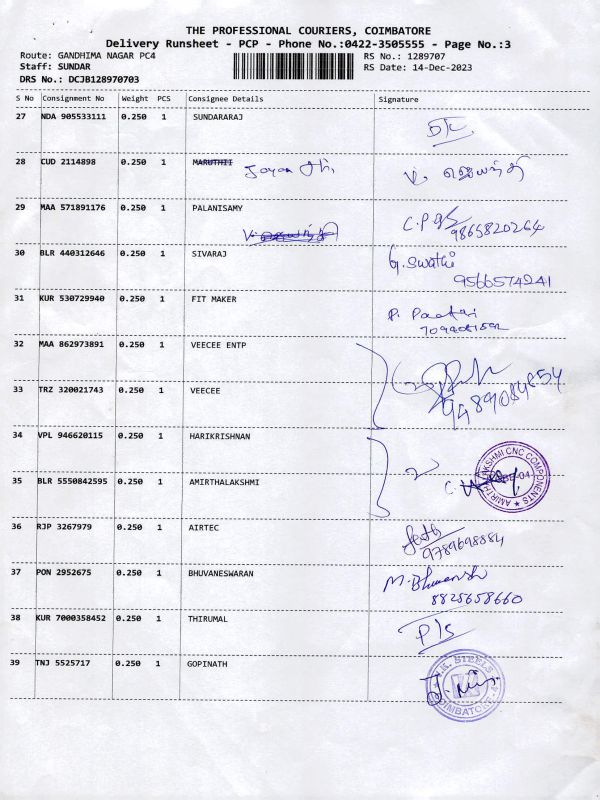 THE PROFESSIONAL COURIERS, COIMBATORE
Delivery Runsheet - PCP - Phone No.:0422-3505555 - Page No.:3
Route: GANDHIMA NAGAR PC4 RS No.: 1289707
Staff: SUNDAR RS Date: 14-Dec-2023
DRS No.: DCJB128970703
S No Consignment No Weight PCS Consignee Details Signature
27 NDA 905533111 0.250 1 SUNDARARAJ
28 CUD 2114898 0.250 1 MARUTHII
29 MAA 571891176 0.250 1 PALANISAMY
9865820264
30 BLR 440312646 0.250 1 SIVARAJ G. Swathi
9566574241
31 KUR 530729940 0.250 1 FIT MAKER
32 MAA 862973891 0.250 1 VEECEE ENTP
33 TRZ 320021743 0.250 1 VEECEE
34 VPL 946620115 0.250 1 HARIKRISHNAN
35 BLR 5550842595 0.250 1 AMIRTHALAKSHMI
AMIRTHALAKSHMI CNC COMPONENTS
36 RJP 3267979 0.250 1 AIRTEC
9789698884
37 PON 2952675 0.250 1 BHUVANESWARAN
8825658660
38 KUR 7000358452 0.250 1 THIRUMAL P/S
39 TNJ 5525717 0.250 1 GOPINATH
K. STEELS
COIMBATORE